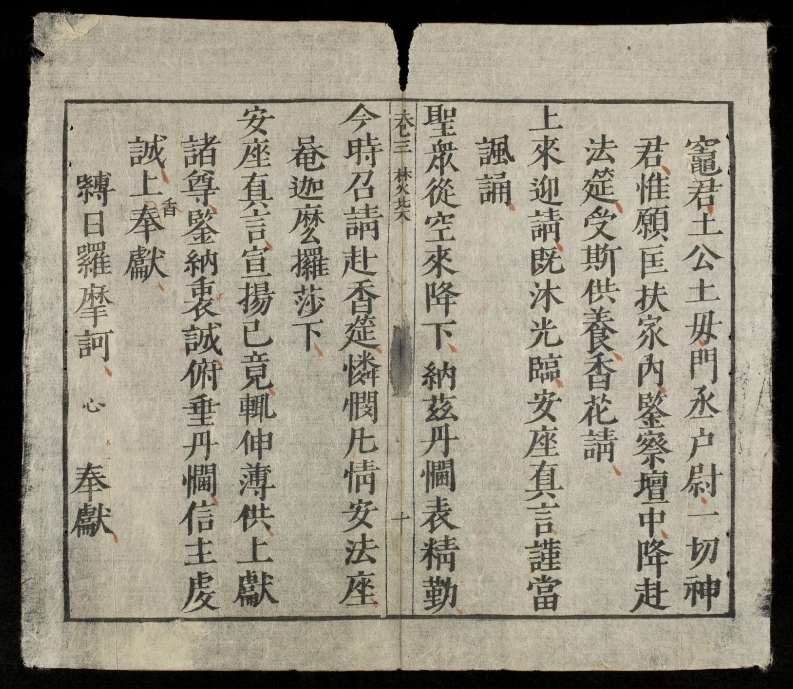 竈君土公土毋門丞户尉一切神
君惟願匡扶家内鑒察壇中降赴
法筵受斯供養香花請
上來迎請既沐光臨安座真言謹當
諷誦
聖衆從空來降下納茲丹悃表精勤
卷三
十
今時召請赴香筵憐憫凡情安法座
菴迦麽攞莎下
安座真言宣揚已竟輒伸薄供上獻
諸尊鑒納衷誠俯垂丹悃信主虔
誠上香奉獻
縛日羅摩訶 心 奉獻